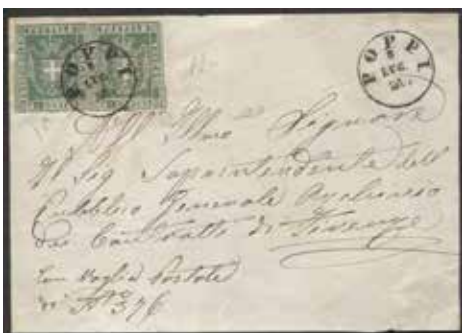 POPPI
LUG.
POPPI
LUG.
All' Illmo Signore
Il Sig Sopraintendente dell
Pubblico Generale Archivio
dei Contratti di Firenze
Con Vaglia Postale
di N° 376